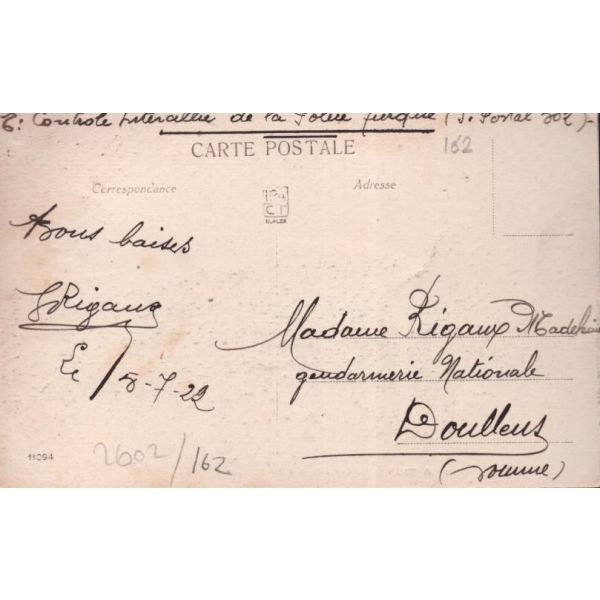 E: Contrôle Interallié de la Police Turque (S. Postal 502)-
CARTE POSTALE
162
Correspondance
Adresse
Bons baisers
GRigaux
Le 8-7-22
Madame Rigaux Madeleine
gendarmerie Nationale
Doullens
(Somme)
11094
2602/162